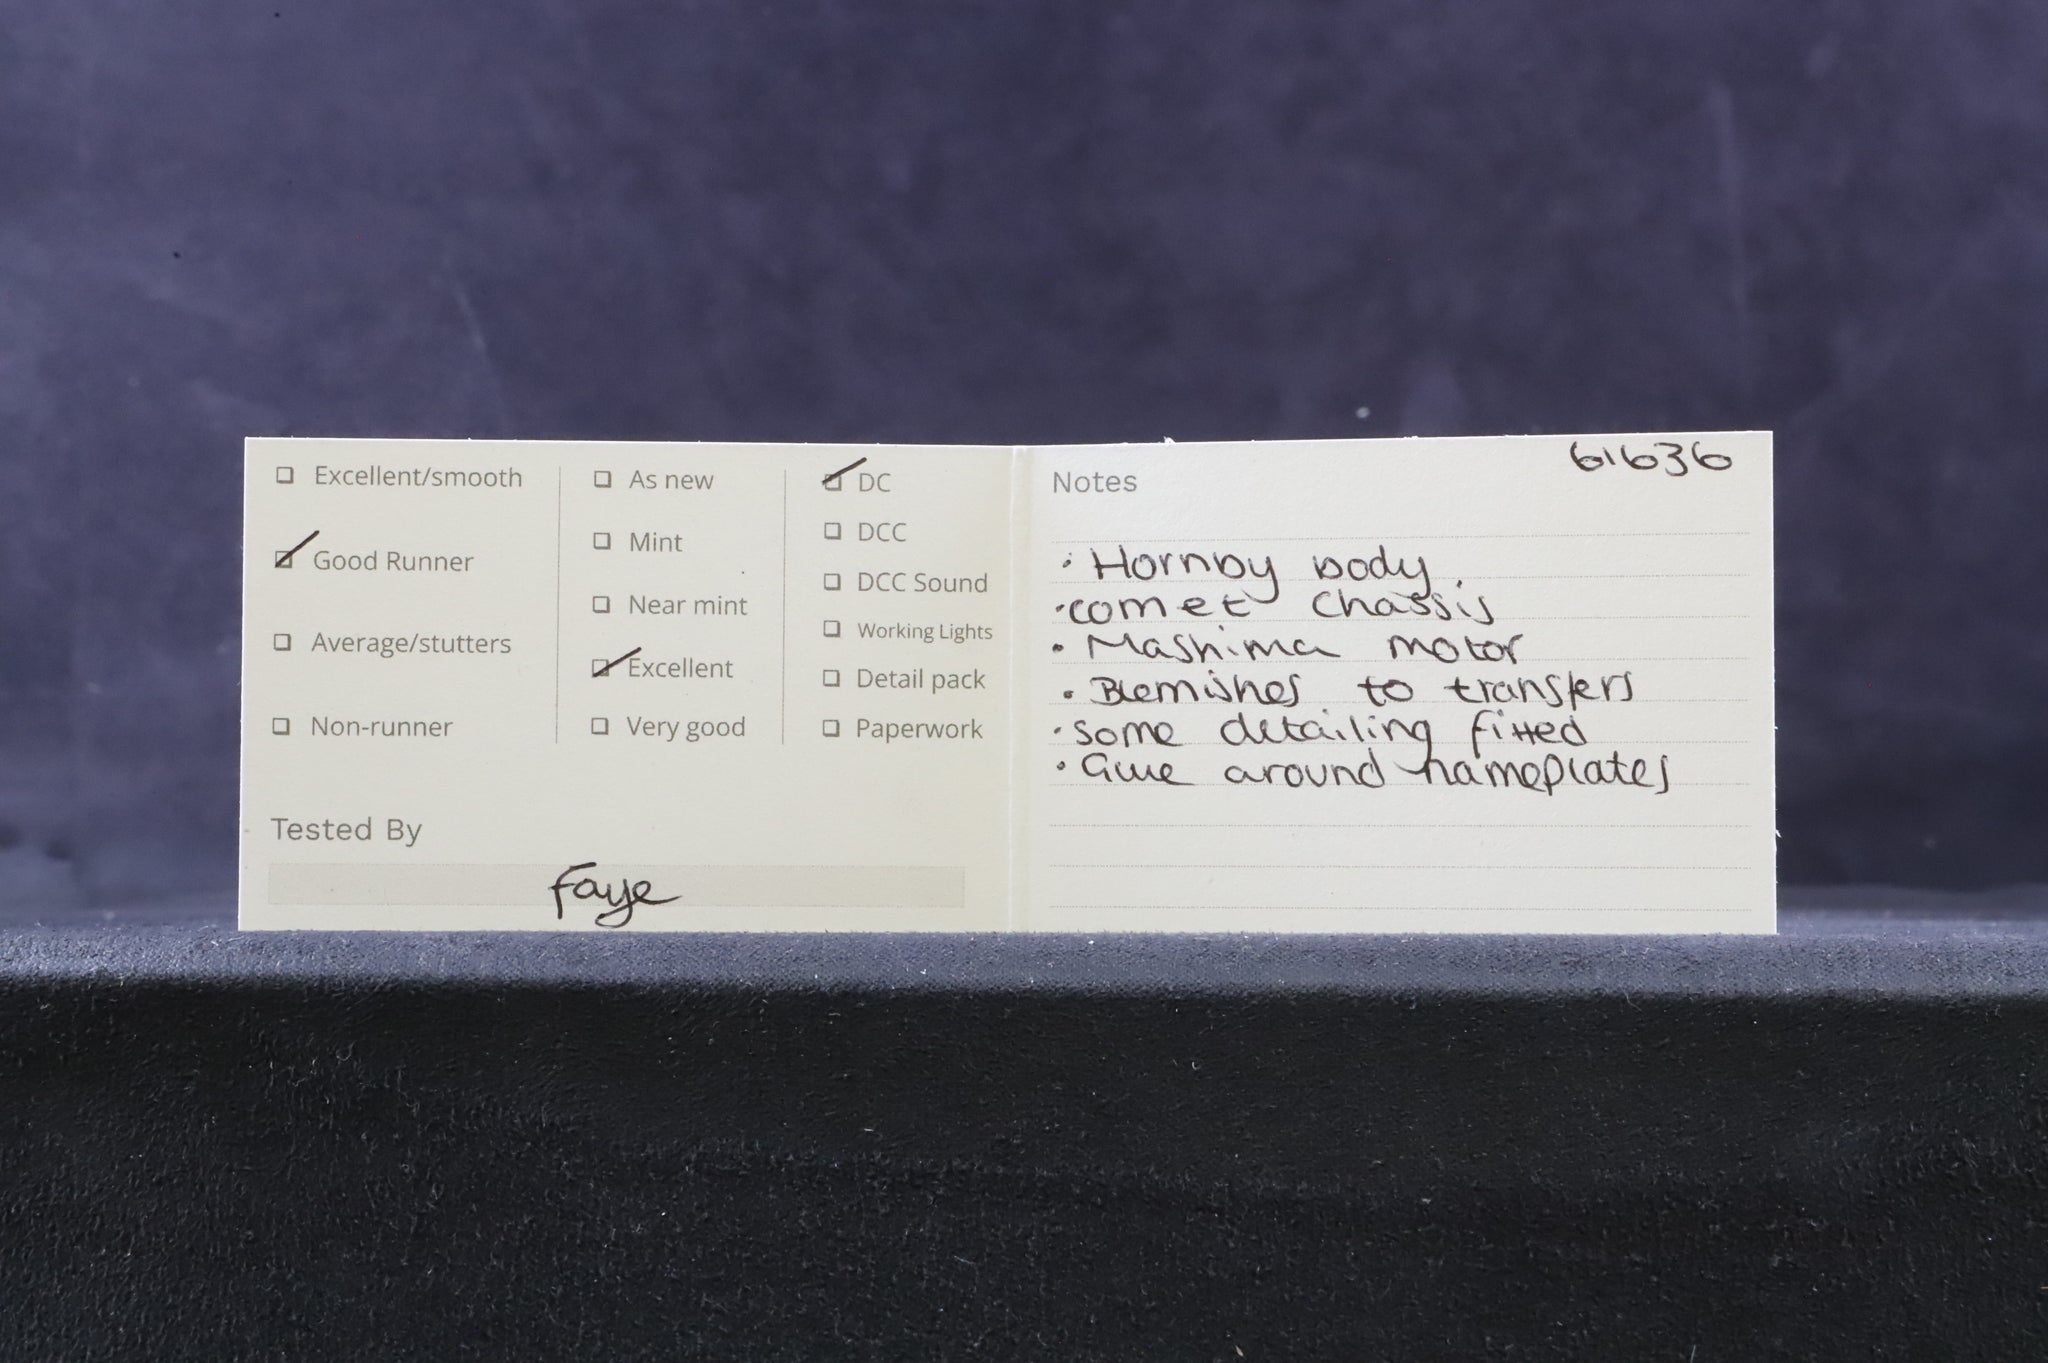 ☐ Excellent/smooth
☑ Good Runner
☐ Average/stutters
☐ Non-runner
☐ As new
☐ Mint
☐ Near mint
☑ Excellent
☐ Very good
☑ DC
☐ DCC
☐ DCC Sound
☐ Working Lights
☐ Detail pack
☐ Paperwork
Tested By
Faye
61636
Notes
• Hornby body.
• comet chassis
• Mashima motor
• Blemishes to transfers
• some detailing fitted
• Glue around nameplates